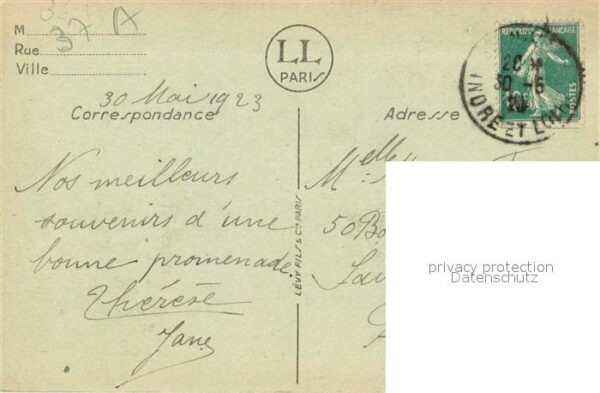 37 A
M
Rue
Ville
LL
PARIS
RÉPUBLIQUE FRANÇAISE
POSTES
20
30 -6
INDRE ET LOI
30 Mai 1923
Correspondance
Adresse
Nos meilleurs
souvenirs d'une
bonne promenade
Thérèse
Jane
LÉVY FILS & Cie PARIS
Melle
50 Bo
privacy protection
Datenschutz